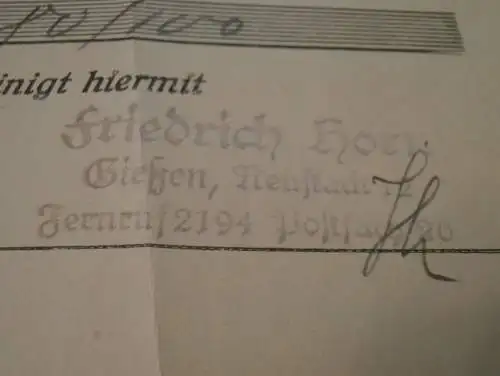 80/100
inigt hiermit
Friedrich Horn
Gießen, Neustadt 12
Fernruf 2194 Postfach 20
Fh